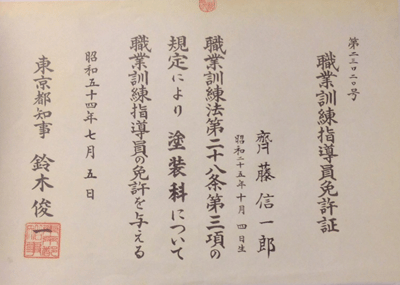 第二三〇二〇号
職業訓練指導員免許証
齊藤信一郎
昭和二十五年十月四日生
職業訓練法第二十八条第三項の
規定により塗装科について
職業訓練指導員の免許を与える
昭和五十四年七月五日
東京都知事 鈴木俊一